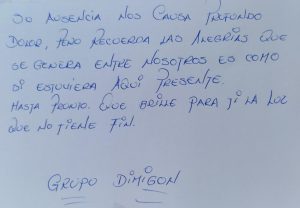 Su ausencia nos causa profundo
dolor, pero recuerda las alegrías que
se genera entre nosotros es como
si estuviera aquí presente.
Hasta pronto. Que brille para ti la luz
que no tiene fin.
Grupo Dimigon